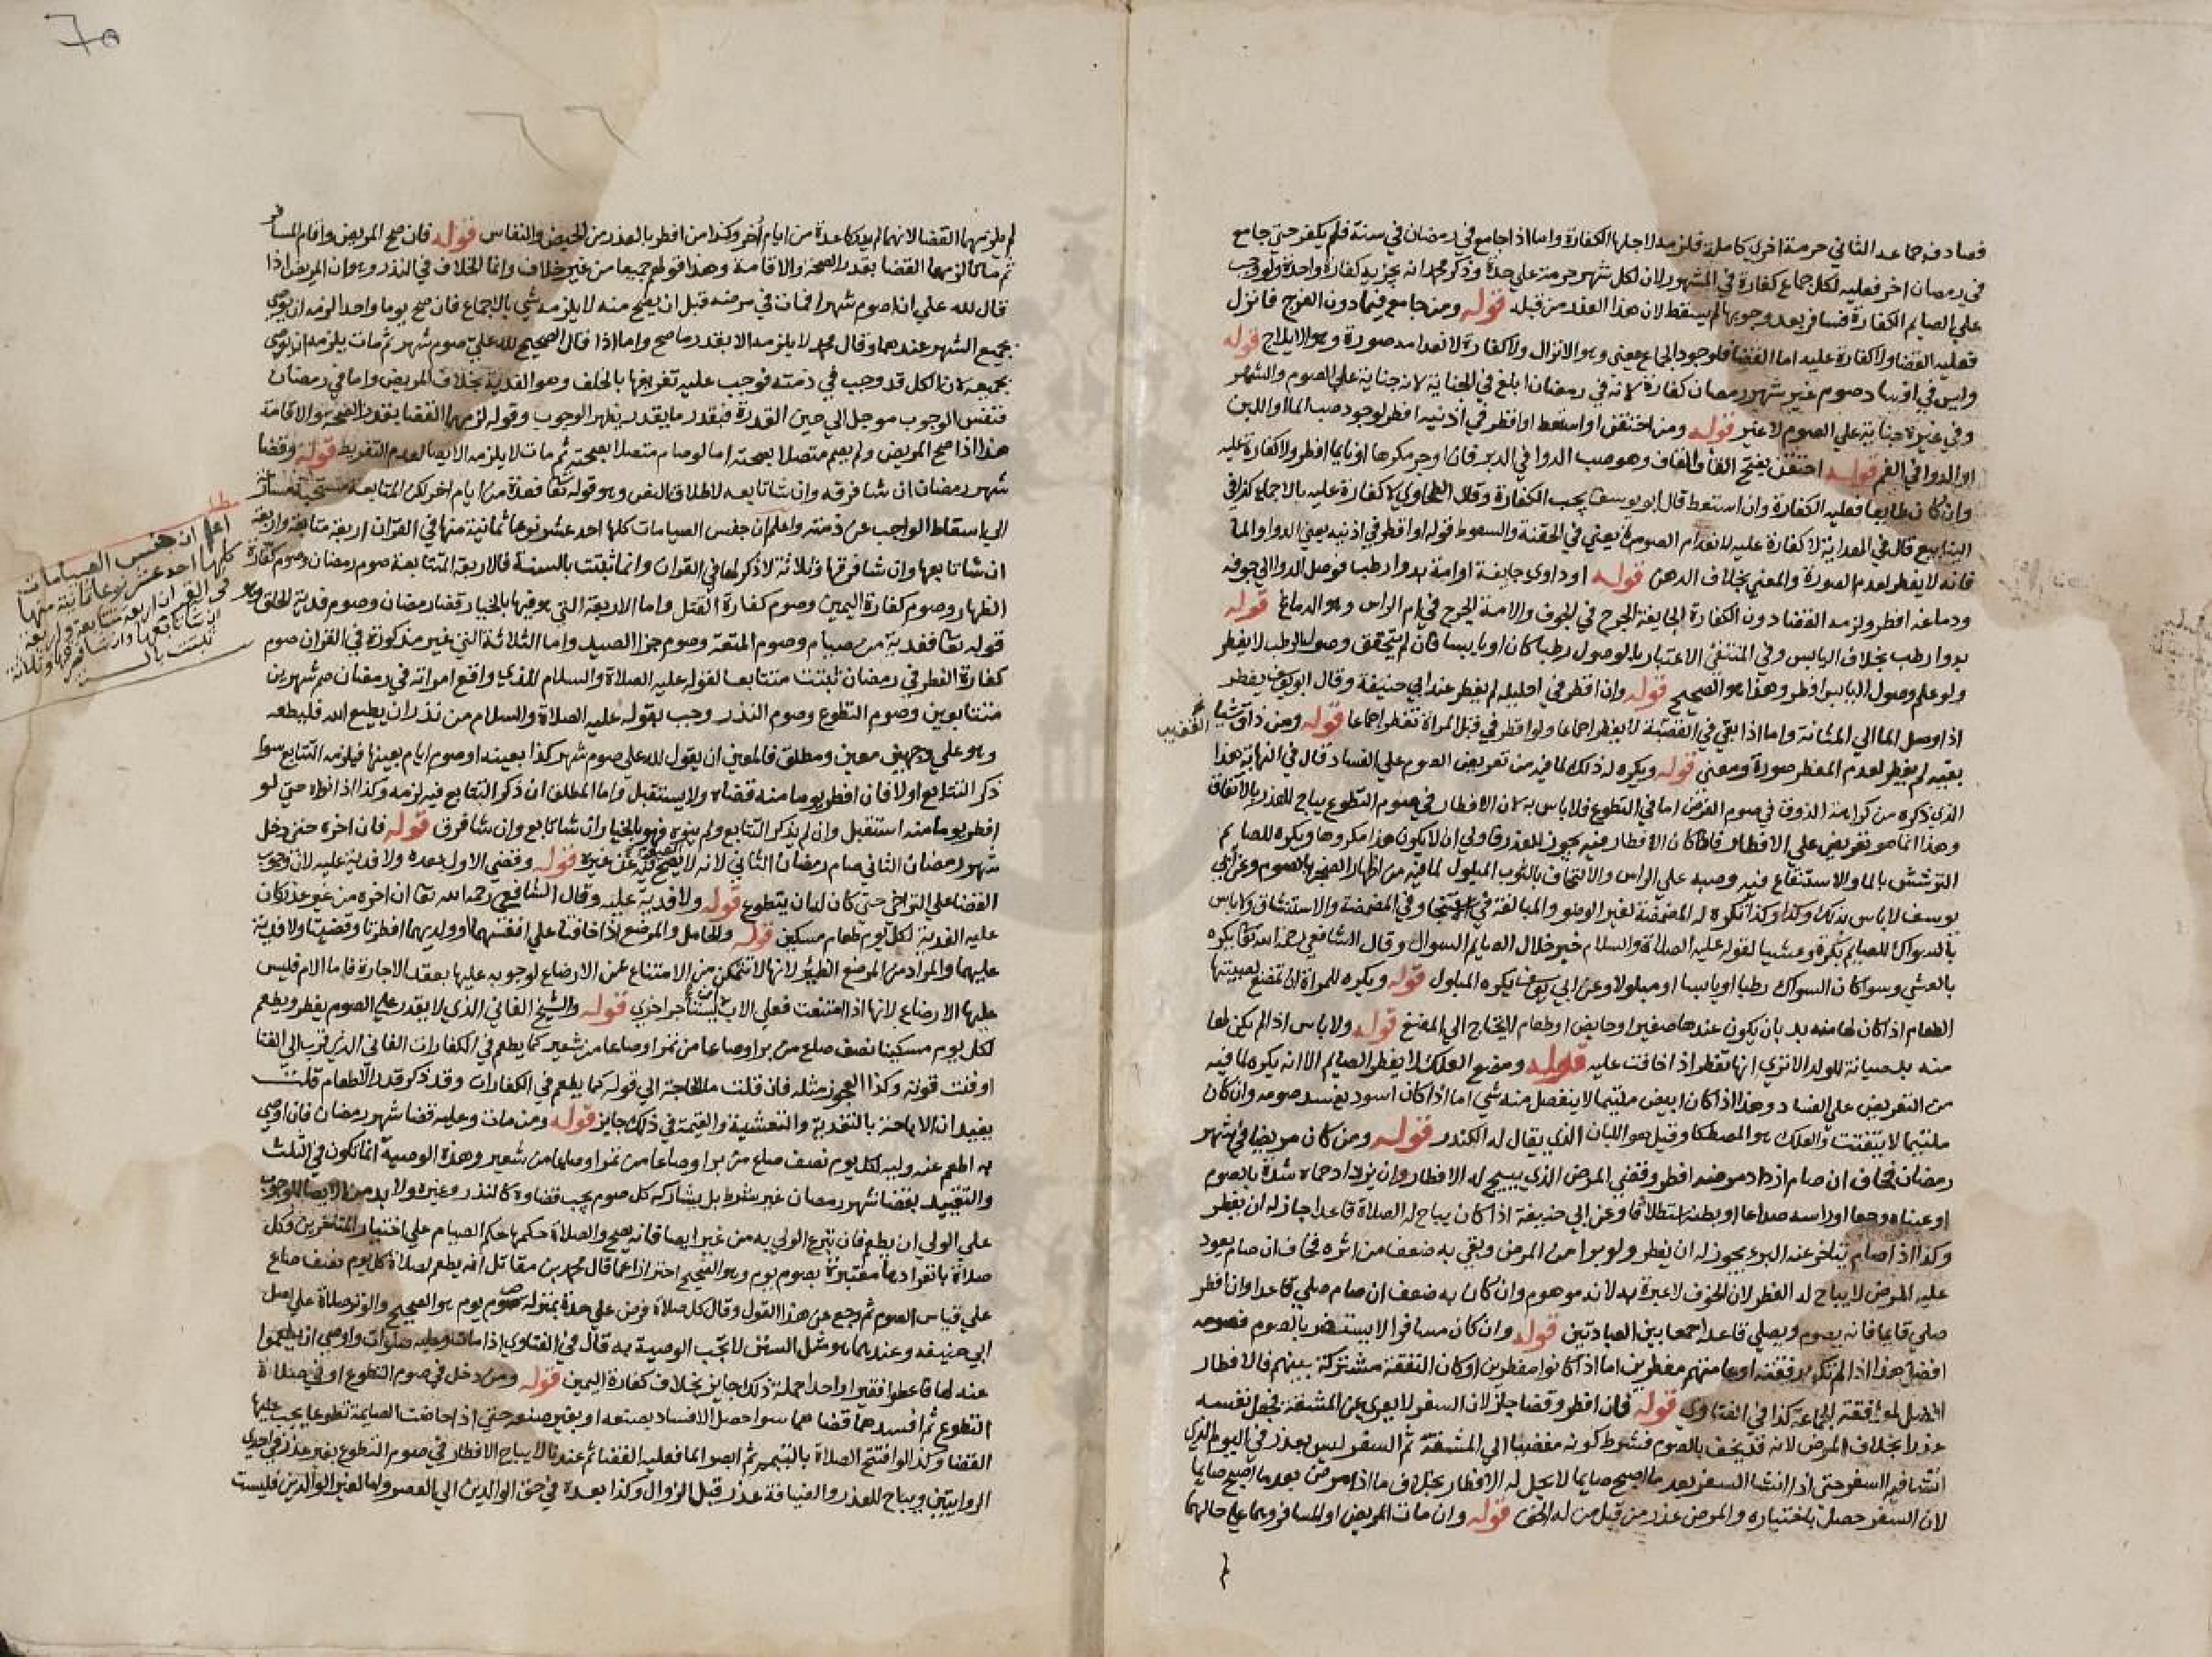 فصادف جماعه الثاني حرمة اخري كاملة فلزمه لاجلها الكفارة واما اذا جامع في رمضان في سنة فلم يكفر حتى جامع
في رمضان اخر فعليه لكل جماع كفارة في المشهور لان لكل شهر حرمة علي حدة وذكر محمد انه يجزيه كفارة واحدة ولو وجب
علي الصايم الكفارة فسافر بعد وجوبها لم يسقط لان هذا العذر من قبله قوله ومن جامع فيما دون الفرج فانزل
فعليه القضا ولا كفارة عليه اما القضا فلوجود الجماع معني وهو الانزال ولا كفارة لانعدامه صورة وهو الايلاج قوله
وليس في افساد صوم غير شهر رمضان كفارة لانه في رمضان ابلغ في الجناية لانه جناية علي الصوم والشهر
وفي غيره جناية علي الصوم لا غير قوله ومن احتقن او استعط او اقطر في اذنيه افطر لوجود صب الما او اللبن
او الدوا في الفم قوله احتقن بفتح التا والقاف وهو صب الدوا في الدبر فان اوجر مكرها او نايما افطر ولا كفارة عليه
وان كان طايعا فعليه الكفارة وان استعط قال ابو يوسف يجب الكفارة وقال الطحاوي لا كفارة عليه بالاجماع كذا في
الينابيع قال في الهداية لا كفارة عليه لانعدام الصورة يعني في الحقنة والسعوط قوله او اقطر في اذنيه يعني الدوا والما
فانه لا يفطر لعدم الصورة والمعني بخلاف الدهن قوله او داوي جايفة او امة بدوا رطب فوصل الدوا الي جوفه
ودماغه افطر ولزمه القضا دون الكفارة الجايفة الجرح في الجوف والامة الجرح في ام الراس وهو الدماغ قوله
بدوا رطب بخلاف اليابس وفي المنتقي الاعتبار بالوصول رطبا كان او يابسا فان لم يتحقق وصول الرطب لا يفطر
ولو علم وصول اليابس افطر وهذا هو الصحيح قوله وان اقطر في احليله لم يفطر عند ابي حنيفة وقال ابو يوسف يفطر
اذا وصل الما الي المثانة واما اذا بقي في القصبة لا يفطر اجماعا ولو اقطر في قبل المراة تفطر اجماعا قوله ومن ذاق شيا
بفيه لم يفطر لعدم المفطر صورة ومعني قوله ويكره له ذلك لما فيه من تعريض الصوم علي الفساد قال في النهاية هذا
الذي ذكره من كراهة الذوق في صوم الفرض اما في التطوع فلا باس به لان الافطار في صوم التطوع يباح للعذر بالاتفاق
وهذا انما هو تعريض علي الافطار فاذا كان الافطار فيه يجوز للعذر فاولي ان لا يكون هذا مكروها ويكره للصايم
الترشش بالما والاستنقاع فيه وصبه علي الراس والالتحاف بالثوب المبلول لما فيه من اظهار الضجر بالصوم وعن ابي
يوسف لا باس بذلك وكذا تكره له المضمضة لغير الوضو والمبالغة في الاستنجا وفي المضمضة والاستنشاق ولا باس
بالسواك للصايم بكرة وعشيا لقوله عليه الصلاة والسلام خير خلال الصايم السواك وقال الشافعي رحمه الله تعا يكره
بالعشي وسوا كان السواك رطبا او يابسا او مبلولا وعن ابي يوسف يكره المبلول قوله ويكره للمراة ان تمضغ لصبيتها
الطعام اذا كان لها منه بد بان يكون عندها صغير او حايض او طعام لا يحتاج الي المضغ قوله ولا باس اذا لم يكن لها
منه بد صيانة للولد الا تري انها تفطر اذا خافت عليه قوله ومضغ العلك لا يفطر الصايم الا انه يكره لما فيه
من التعريض علي الفساد وهذا اذا كان ابيض ملتيما لا ينفصل منه شي اما اذا كان اسود يفسد صومه وان كان
ملتيما لا يتفتت والعلك هو المصطكا وقيل هو اللبان الذي يقال له الكندر قوله ومن كان مريضا في شهر
رمضان فخاف ان صام ازداد مرضه افطر وقضي المرض الذي يبيح له الافطار وان يزداد حماه شدة بالصوم
او عيناه وجعا او راسه صداعا او بطنه استطلاقا وعن ابي حنيفة اذا كان يباح له الصلاة قاعدا جاز له ان يفطر
وكذا اذا صام يتاخر عنه البرء يجوز له ان يفطر ولو برا من المرض وبقي به ضعف من اثره فخاف ان صام يعود
عليه المرض لا يباح له الفطر لان الخوف لا عبرة به لانه موهوم وان كان به ضعف ان صام صلي قاعدا وان افطر
صلي قايما فانه يصوم ويصلي قاعدا جمعا بين العبادتين قوله وان كان مسافرا لا يستضر بالصوم فصومه
افضل هذا اذا لم تكن رفقته او عامتهم مفطرين اما اذا كانوا مفطرين او كان النفقة مشتركة بينهم فالافطار
افضل لموافقة الجماعة كذا في الفتاوي قوله فان افطر وقضا جاز لان السفر لا يعري عن المشقة فجعل نفسه
عذرا بخلاف المرض لانه قد يخف بالصوم فشرط كونه مفضيا الي المشقة ثم السفر ليس بعذر في اليوم الذي
انشا فيه السفر حتى اذا انشا السفر بعد ما اصبح صايما لا يحل له الافطار بخلاف ما اذا مرض بعد ما اصبح صايما
لان السفر حصل باختياره والمرض عذر من قبل من له الحق قوله وان مات المريض او المسافر وهما علي حالهما
٦٥
لم يلزمهما القضا لانهما لم يدركا عدة من ايام اخر وكذا من افطر بالعذر من الحيض والنفاس قوله فان صح المريض واقام المسافر
ثم ماتا لزمهما القضا بقدر الصحة والاقامة وهذا قولهم جميعا من غير خلاف وانما الخلاف في النذر وهو ان المريض اذا
قال لله علي ان اصوم شهرا فمات في مرضه قبل ان يصح منه لا يلزمه شي بالاجماع فان صح يوما واحدا لزمه ان يوصي
بجميع الشهر عندهما وقال محمد لا يلزمه الا بقدر ما صح واما اذا قال الصحيح لله علي صوم شهر ثم مات يلزمه ان يوصي
بجميعه لان الكل قد وجب في ذمته فوجب عليه تفريغها بالخلف وهو الفدية بخلاف المريض واما في رمضان
فنفس الوجوب موجل الي حين القدرة فبقدر ما يقدر يظهر الوجوب وقوله لزمهما القضا بقدر الصحة والاقامة
هذا اذا صح المريض ولم يصم متصلا بصحته اما لو صام متصلا بصحته ثم مات لا يلزمه الايصا لعدم التفريط قوله وقضا
شهر رمضان ان شا فرقه وان شا تابعه لاطلاق النص وهو قوله تعا فعدة من ايام اخر لكن المتابعة مستحبة مسارعة
الي اسقاط الواجب عن ذمته واعلم ان جنس الصيامات كلها احد عشر نوعا ثمانية منها في القران اربعة متتابعة واربعة
ان شا تابعها وان شا فرقها وثلاثة لا ذكر لها في القران وانما ثبتت بالسنة فالاربعة المتتابعة صوم رمضان وصوم كفارة
الظهار وصوم كفارة اليمين وصوم كفارة القتل واما الاربعة التي هو فيها بالخيار قضا رمضان وصوم فدية الحلق وهو
قوله تعا ففدية من صيام وصوم المتعة وصوم جزا الصيد واما الثلاثة التي غير مذكورة في القران صوم
كفارة الفطر في رمضان ثبتت متتابعا لقوله عليه الصلاة والسلام للذي واقع امراته في رمضان صم شهرين
متتابعين وصوم التطوع وصوم النذر وجب بقوله عليه الصلاة والسلام من نذر ان يطيع الله فليطعه
وهو علي وجهين معين ومطلق فالمعين ان يقول لله علي صوم شهر كذا بعينه او صوم ايام بعينها فيلزمه التتابع سوا
ذكر التتابع او لا فان افطر يوما منه قضاه ولا يستقبل واما المطلق ان ذكر التتابع فيه لزمه وكذا اذا نواه حتى لو
افطر يوما منه استقبل وان لم يذكر التتابع ولم ينوه فهو بالخيار ان شا تابع وان شا فرق قوله فان اخره حتى دخل
شهر رمضان الثاني صام رمضان الثاني لانه لا يصح فيه عن غيره قوله وقضي الاول بعده ولا فدية عليه لان وجوب
القضا علي التراخي حتى كان له ان يتطوع قوله ولا فدية عليه وقال الشافعي رحمه الله تعا ان اخره من غير عذر كان
عليه الفدية لكل يوم طعام مسكين قوله والحامل والمرضع اذا خافتا علي انفسهما او ولديهما افطرتا وقضيتا ولا فدية
عليهما والمراد من المرضع الظير لانها لا تتمكن من الامتناع عن الارضاع لوجوبه عليها بعقد الاجارة فاما الام فليس
عليها الارضاع لانها اذا امتنعت فعلي الاب ان يستاجر اخري قوله والشيخ الفاني الذي لا يقدر علي الصوم يفطر ويطعم
لكل يوم مسكينا نصف صاع من بر او صاعا من تمر او صاعا من شعير كما يطعم في الكفارات الفاني الذي قرب الي الفنا
او فنت قوته وكذا العجوز مثله فان قلت ما الحاجة الي قوله كما يطعم في الكفارات وقد ذكر قدر الاطعام قلت
يفيد ان الاباحة بالتغدية والتعشية والقيمة في ذلك جايز قوله ومن مات وعليه قضا شهر رمضان فان اوصي
به اطعم عنه وليه لكل يوم نصف صاع من بر او صاعا من تمر او صاعا من شعير وهذه الوصية انما تكون في الثلث
والتقييد بقضا شهر رمضان غير شرط بل يشاركه كل صوم يجب قضاوه كالنذر وغيره ولا بد من الايصا للوجوب
علي الولي ان يطعم فان تبرع الولي به من غير ايصا فانه يصح والصلاة حكمها حكم الصيام علي اختيار المتاخرين وكل
صلاة بانفرادها معتبرة بصوم يوم وهو الصحيح احترازا عما قال محمد بن مقاتل انه يطعم لصلاة كل يوم نصف صاع
علي قياس الصوم ثم رجع عن هذا القول وقال كل صلاة فرض علي حدة بمنزلة صوم يوم هو الصحيح والوتر صلاة علي اصل
ابي حنيفه وعندهما هو مثل السنن لا تجب الوصية به قال في الفتاوي اذا مات وعليه صلوات واوصي ان يطعموا
عنه لها فاعطوا فقيرا واحدا جملة ذلك جايز بخلاف كفارة اليمين قوله ومن دخل في صوم التطوع او في صلاة
التطوع ثم افسدهما قضاهما سوا حصل الافساد بصنعه او بغير صنعه حتى اذا حاضت الصايمة تطوعا يجب عليها
القضا وكذا لو افتتح الصلاة بالتيمم ثم ابصر الما فعليه القضا ثم عندنا لا يباح الافطار في صوم التطوع بغير عذر في احدي
الروايتين ويباح للعذر والضيافة عذر قبل الزوال وكذا بعده في حق الوالدين الي العصر واما لغير الوالدين فليست
مطلب
اعلم ان جنس الصيامات
كلها احد عشر نوعا ثمانية منها
في القران اربعة متتابعة واربعة
ان شا تابعها وان شا فرقها وثلاثة
ثبتت بالسنة